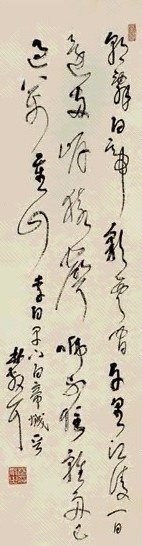 朝辞白帝彩云间千里江陵一日
还两岸猿声啼不住轻舟已
过万重山 李白早下白帝城 
林散耳